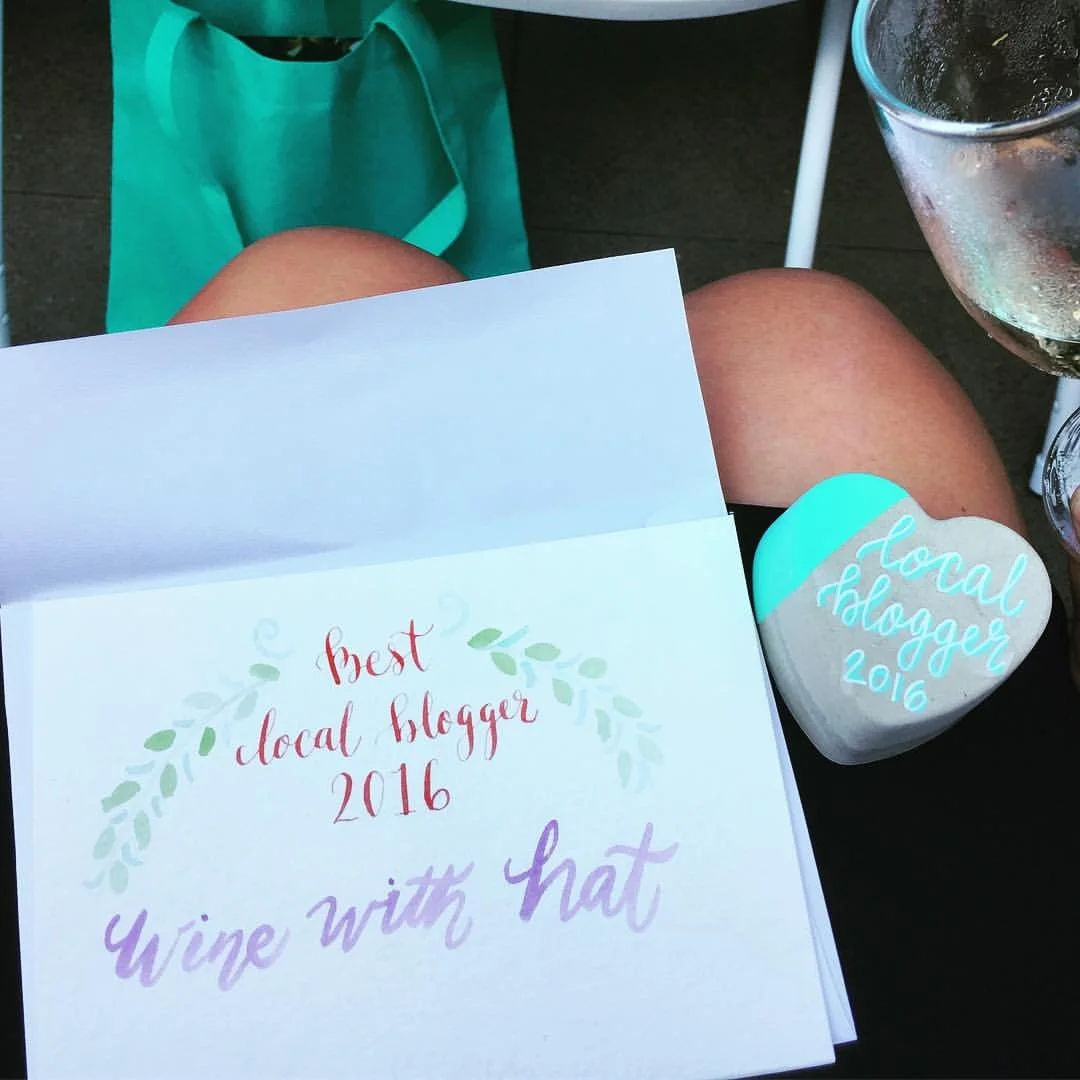 Best
local blogger
2016
Wine with hat
local
blogger
2016